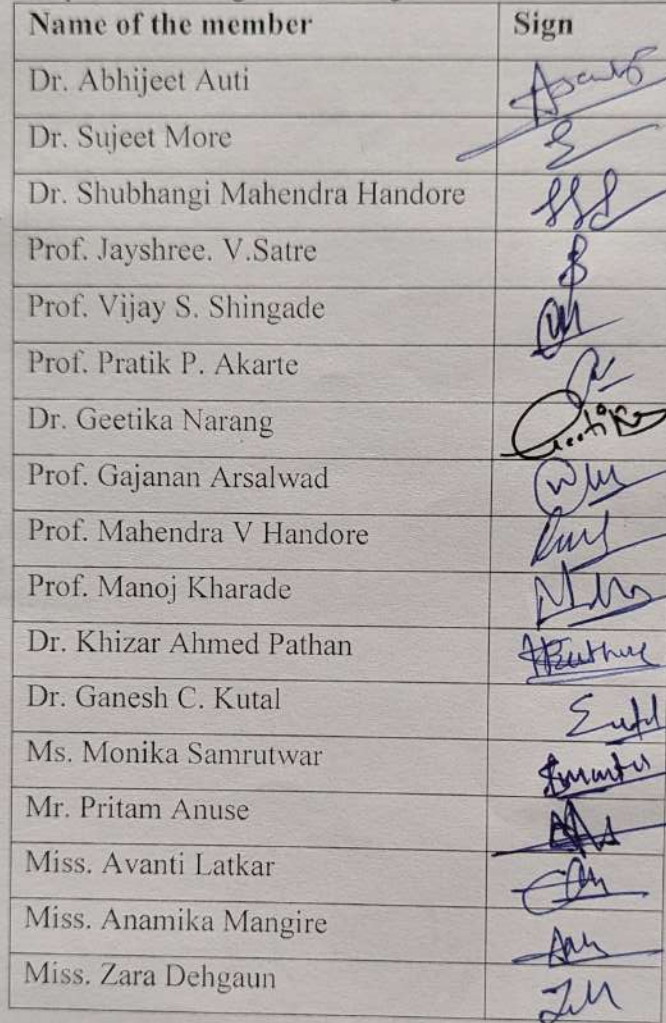 Name of the member Sign
Dr. Abhijeet Auti
Dr. Sujeet More
Dr. Shubhangi Mahendra Handore
Prof. Jayshree. V.Satre
Prof. Vijay S. Shingade
Prof. Pratik P. Akarte
Dr. Geetika Narang Geetika
Prof. Gajanan Arsalwad
Prof. Mahendra V Handore
Prof. Manoj Kharade
Dr. Khizar Ahmed Pathan
Dr. Ganesh C. Kutal
Ms. Monika Samrutwar
Mr. Pritam Anuse
Miss. Avanti Latkar
Miss. Anamika Mangire
Miss. Zara Dehgaun